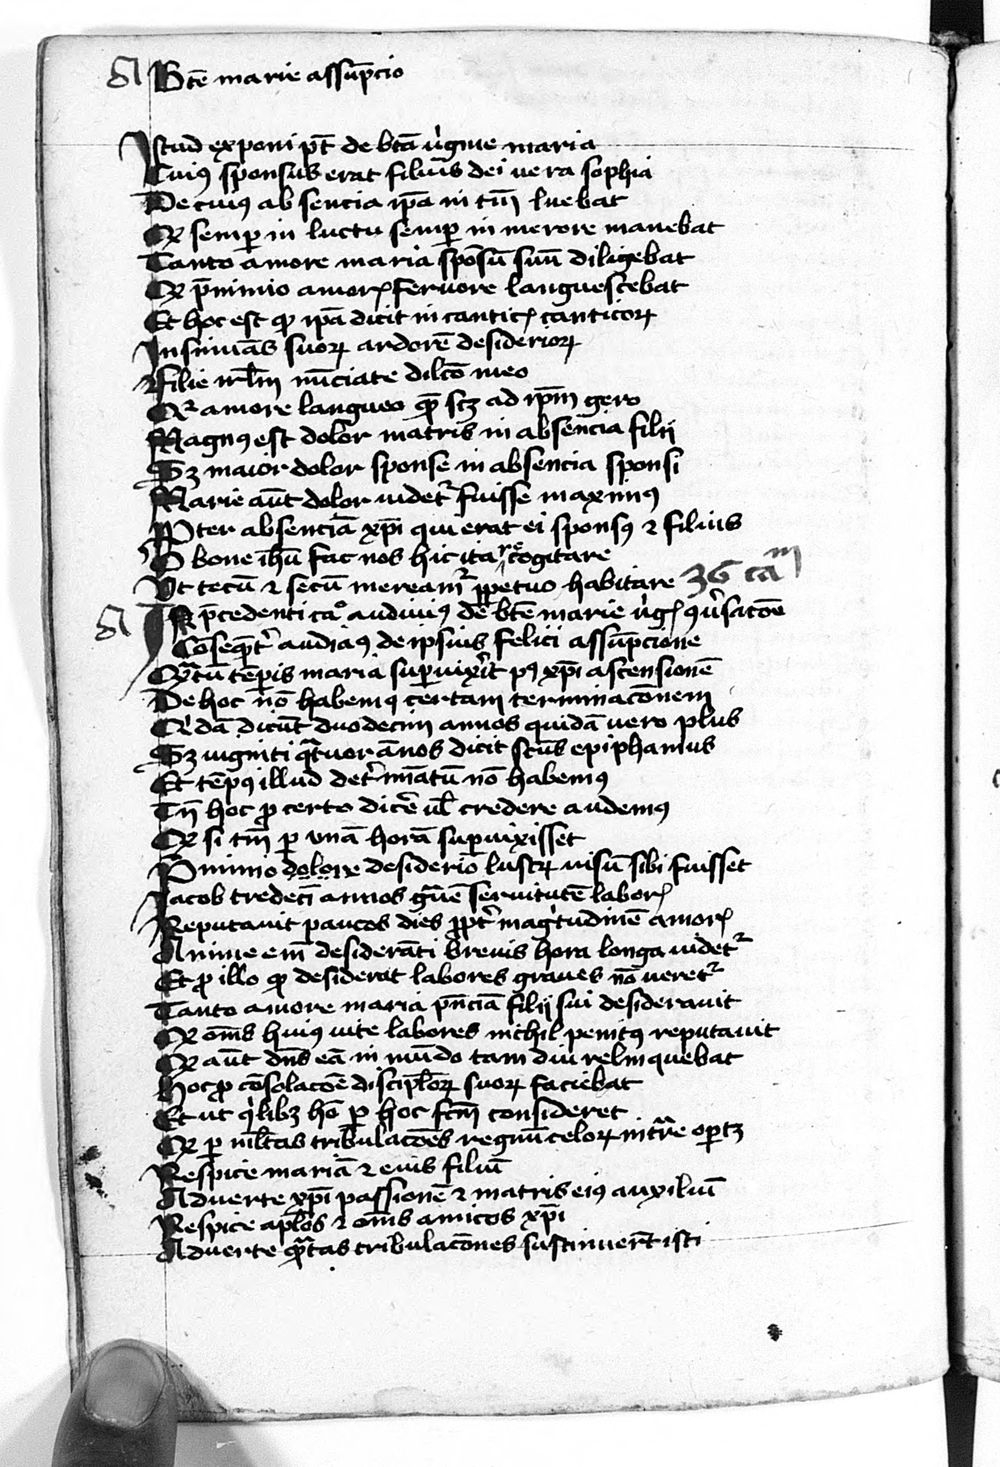 Bte᷉ marie assūpcio
Istud exponi pt̄ de bt̄a v̓gine maria
Cuiꝯ sponsus erat filius dei vera sophia
De cuius absencia ip̄a in tm̄ luebat
Qꝛ semꝑ in luctu semꝑ in merore manebat
Tanto amore maria sponsū suū diligebat
Qꝛ p̄ nimio amorꝭ fervore languescebat
Et hoc est qꝫ ip̄a dicit in canticꝭ canticoꝝ
Insinuās suoꝝ ardorē desiderioꝝ
Filie irl̄m nūciate dilc̄o meo
Qꝛ amore langueo qm̄ scꝫ ad ip̄m gero
Magnꝯ est dolor matris in absencia filii
Sꝫ maior dolor sponse in absencia sponsi
Marie aūt dolor videtᷣ fuisse maximꝯ
Ꝓpter absenciā xp̄i qui erat ei sponsꝯ ⁊ filius
O bone ih̄u fac nos hic ita cogitare
Vt tecū ⁊ secū mereamᷣ ꝑpetuo habitare 36 caᵐ
In p̄cedenti caº audiuiꝯ de bt̄e marie v̓gꝭ ꝯu̓sacōe
Cōseqt̄r audiaꝯ de ipsius felici assūpcione
Qᷓtū tēpis maria suꝑuixi̓t pꝯ xp̄i ascensionē
De hoc nō habemꝯ certam terminacōnem
Qi̓dā dicūt duodecim annos quidā vero plus
Sꝫ viginti qᷓtuor ānos dicit sc̄us epiphanius
Et tēpꝯ illud det̓mīatū nō habemꝯ
Tn̄ hoc ꝓ certo dicē vl̄ credere audemꝯ
Qꝛ si tm̄ ꝑ vnā horā suꝑuixisset
P̄ nimio dolore desiderio lustꝝ visū sibi fuisset
Iacob tredecī annos gᷓuē seruitutē laborꝭ
Reputauit paucos dies ꝓpt̓ magͥtudinē amorꝭ
Anime em̄ desiderāti breuis hora longa videtᷣ
Et ꝓ illo qꝫ desiderat labores graues nō veretᷣ
Tanto amore maria pn̄ciā filii sui desiderauit
Qꝛ om̄s huiꝯ vite labores nichil penitꝯ reputauit
Qꝛ aūt dn̄s eā in mūdo tam diu relinquebat
Hoc ꝓ cōsolacōe discipl̄oꝝ suoꝝ faciebat
Et ut qͥlibꝫ hō ꝑ hoc scm̄ consideret
Qꝛ ꝑ ml̄tas tribulacōes regnū celoꝝ intᷓre oꝑtꝫ
Respice mariā ⁊ euis filiū
Aduerte xp̄i passionē ⁊ matris eiꝯ auxiliū
Respice apl̄os ⁊ om̄s amicos xp̄i
Aduerte qᷓtas tribulacōnes sustinuer̄t isti